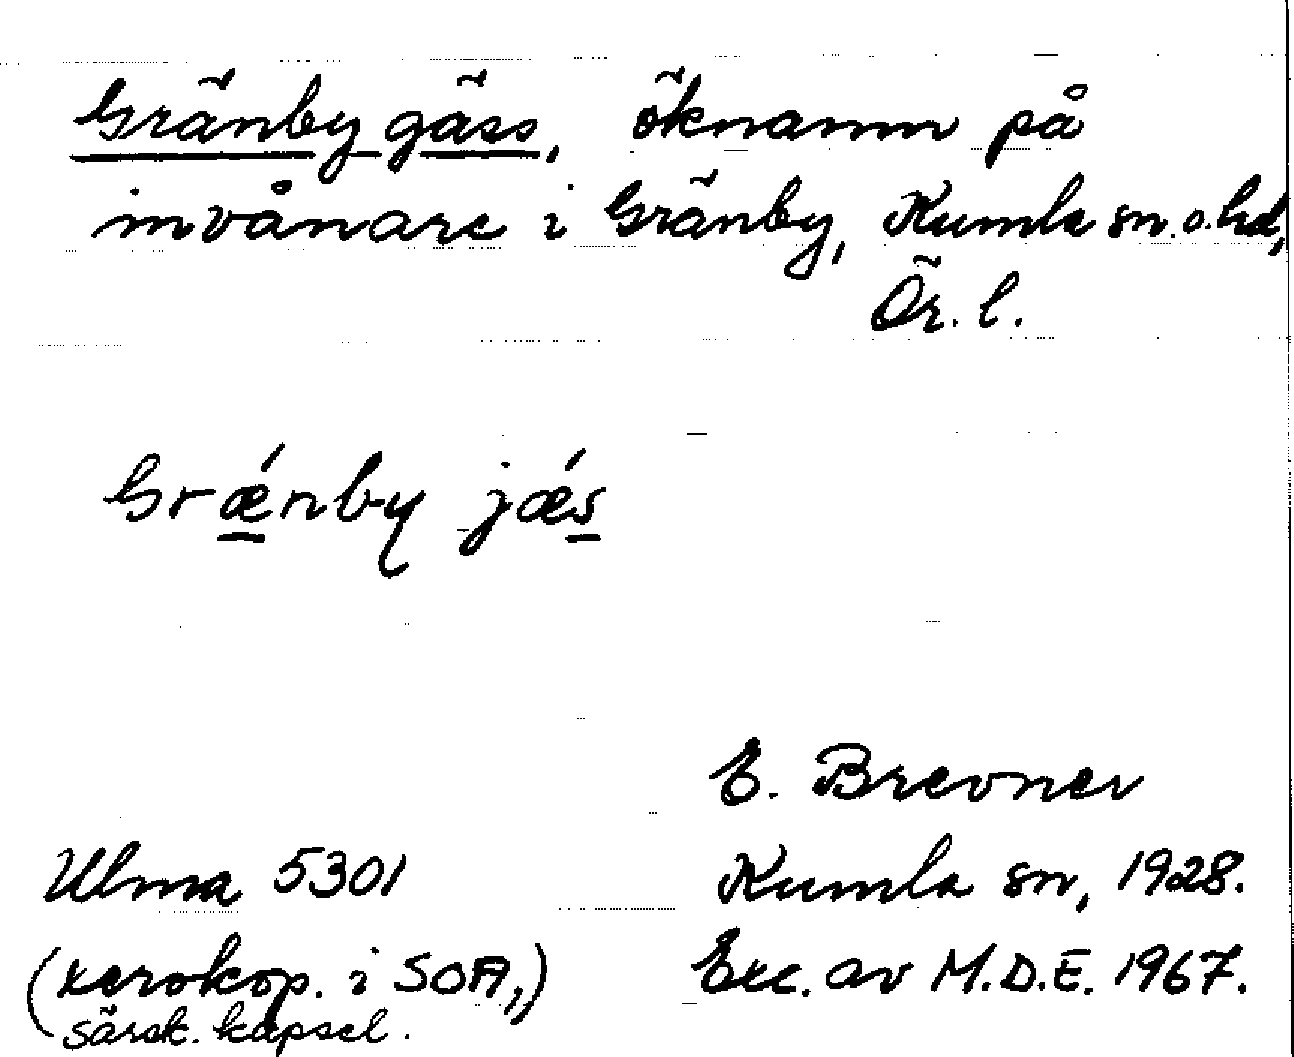 Gränby gäss, öknamn på
invånare i Gränby, Kumla sn. o. hd,
Ör. l.
Grǽnby jǽs
E. Brevner
Ulma 5301
Kumla sn, 1928.
(xerokop. i SOA,)
Exc. av M.D.E. 1967.
särsk. kapsel.